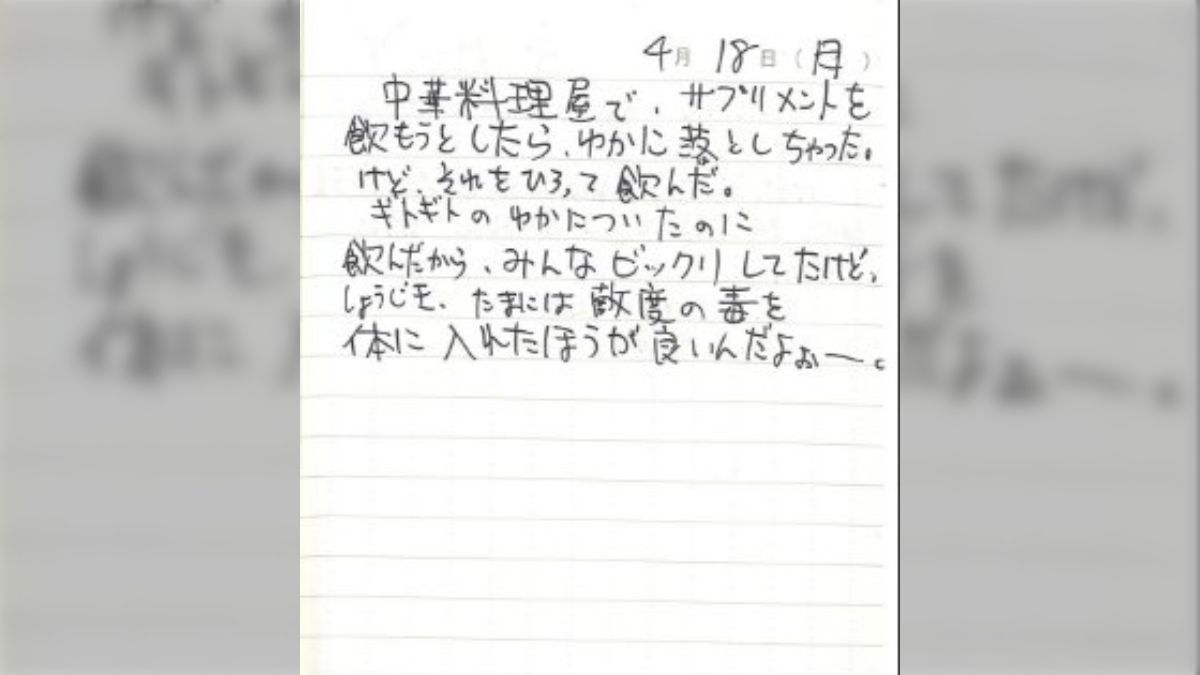 4月 18日(月)
中華料理屋で、サプリメントを
飲もうとしたら、ゆかに落としちゃった。
けど、それをひろって飲んだ。
ギトギトのゆかについたのに
飲んだから、みんなビックリしてたけど、
しょうじき、たまには 度の毒を
体に入れたほうが良いんだよぉー。